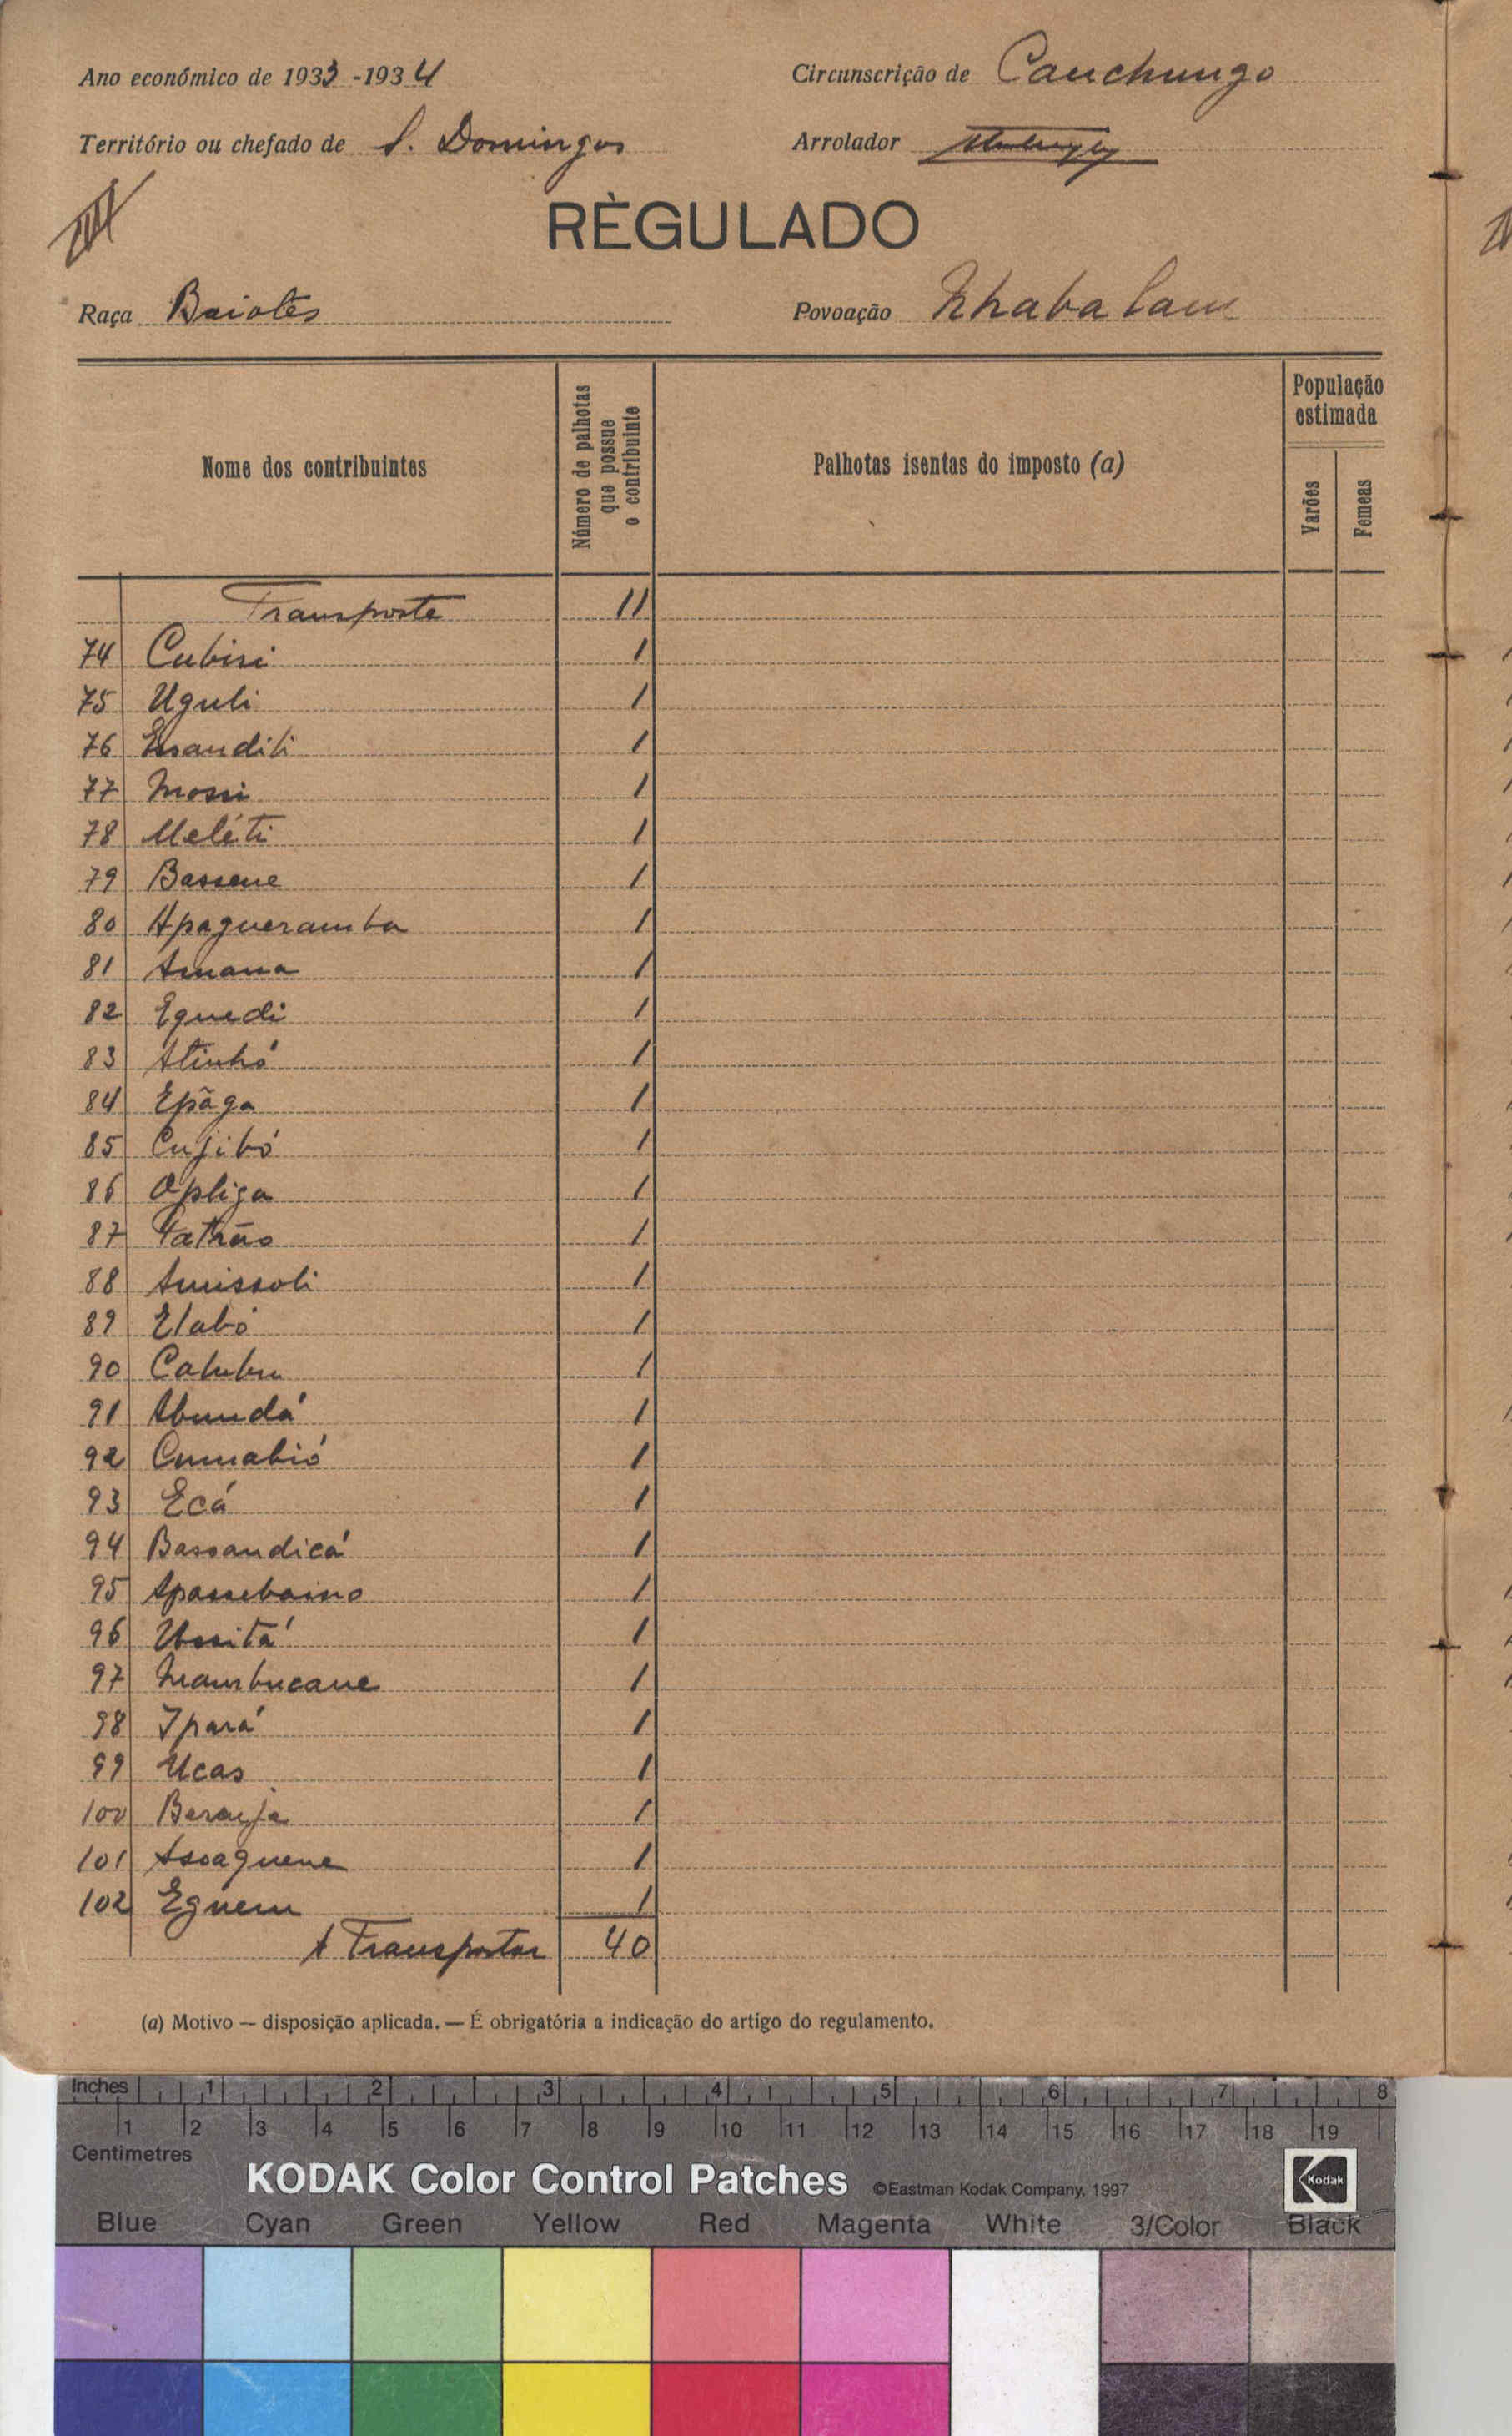 Ano económico de 1933-1934
Circunscrição de Canchungo
Território ou chefado de S. Domingos
Arrolador
RÈGULADO
Raça Baiotes
Povoação Nhabalam
Nome dos contribuintes
Número de palhotas que possue o contribuinte
Palhotas isentas do imposto (a)
População estimada
Varões
Femeas
Transporte 11
74 Cubisi 1
75 Uguli 1
76 Essanditi 1
77 Mossi 1
78 Meléti 1
79 Bassene 1
80 Apagueramba 1
81 Amana 1
82 Eguedi 1
83 Atinhó 1
84 Epãga 1
85 Cujibó 1
86 Opliga 1
87 1
88 Amissoli 1
89 Elabó 1
90 1
91 Abundá 1
92 Cumabió 1
93 Ecá 1
94 Bassandicá 1
95 Apassebaino 1
96 Ussitá 1
97 Mambucane 1
98 Ipará 1
99 Ucas 1
100 Beranja 1
101 Assaguene 1
102 Eguem 1
A Transportar 40
(a) Motivo — disposição aplicada. — É obrigatória a indicação do artigo do regulamento.
Inches 1 2 3 4 5 6 7 8
1 2 3 4 5 6 7 8 9 10 11 12 13 14 15 16 17 18 19
Centimetres
KODAK Color Control Patches ©Eastman Kodak Company, 1997 Kodak
Blue Cyan Green Yellow Red Magenta White 3/Color Black